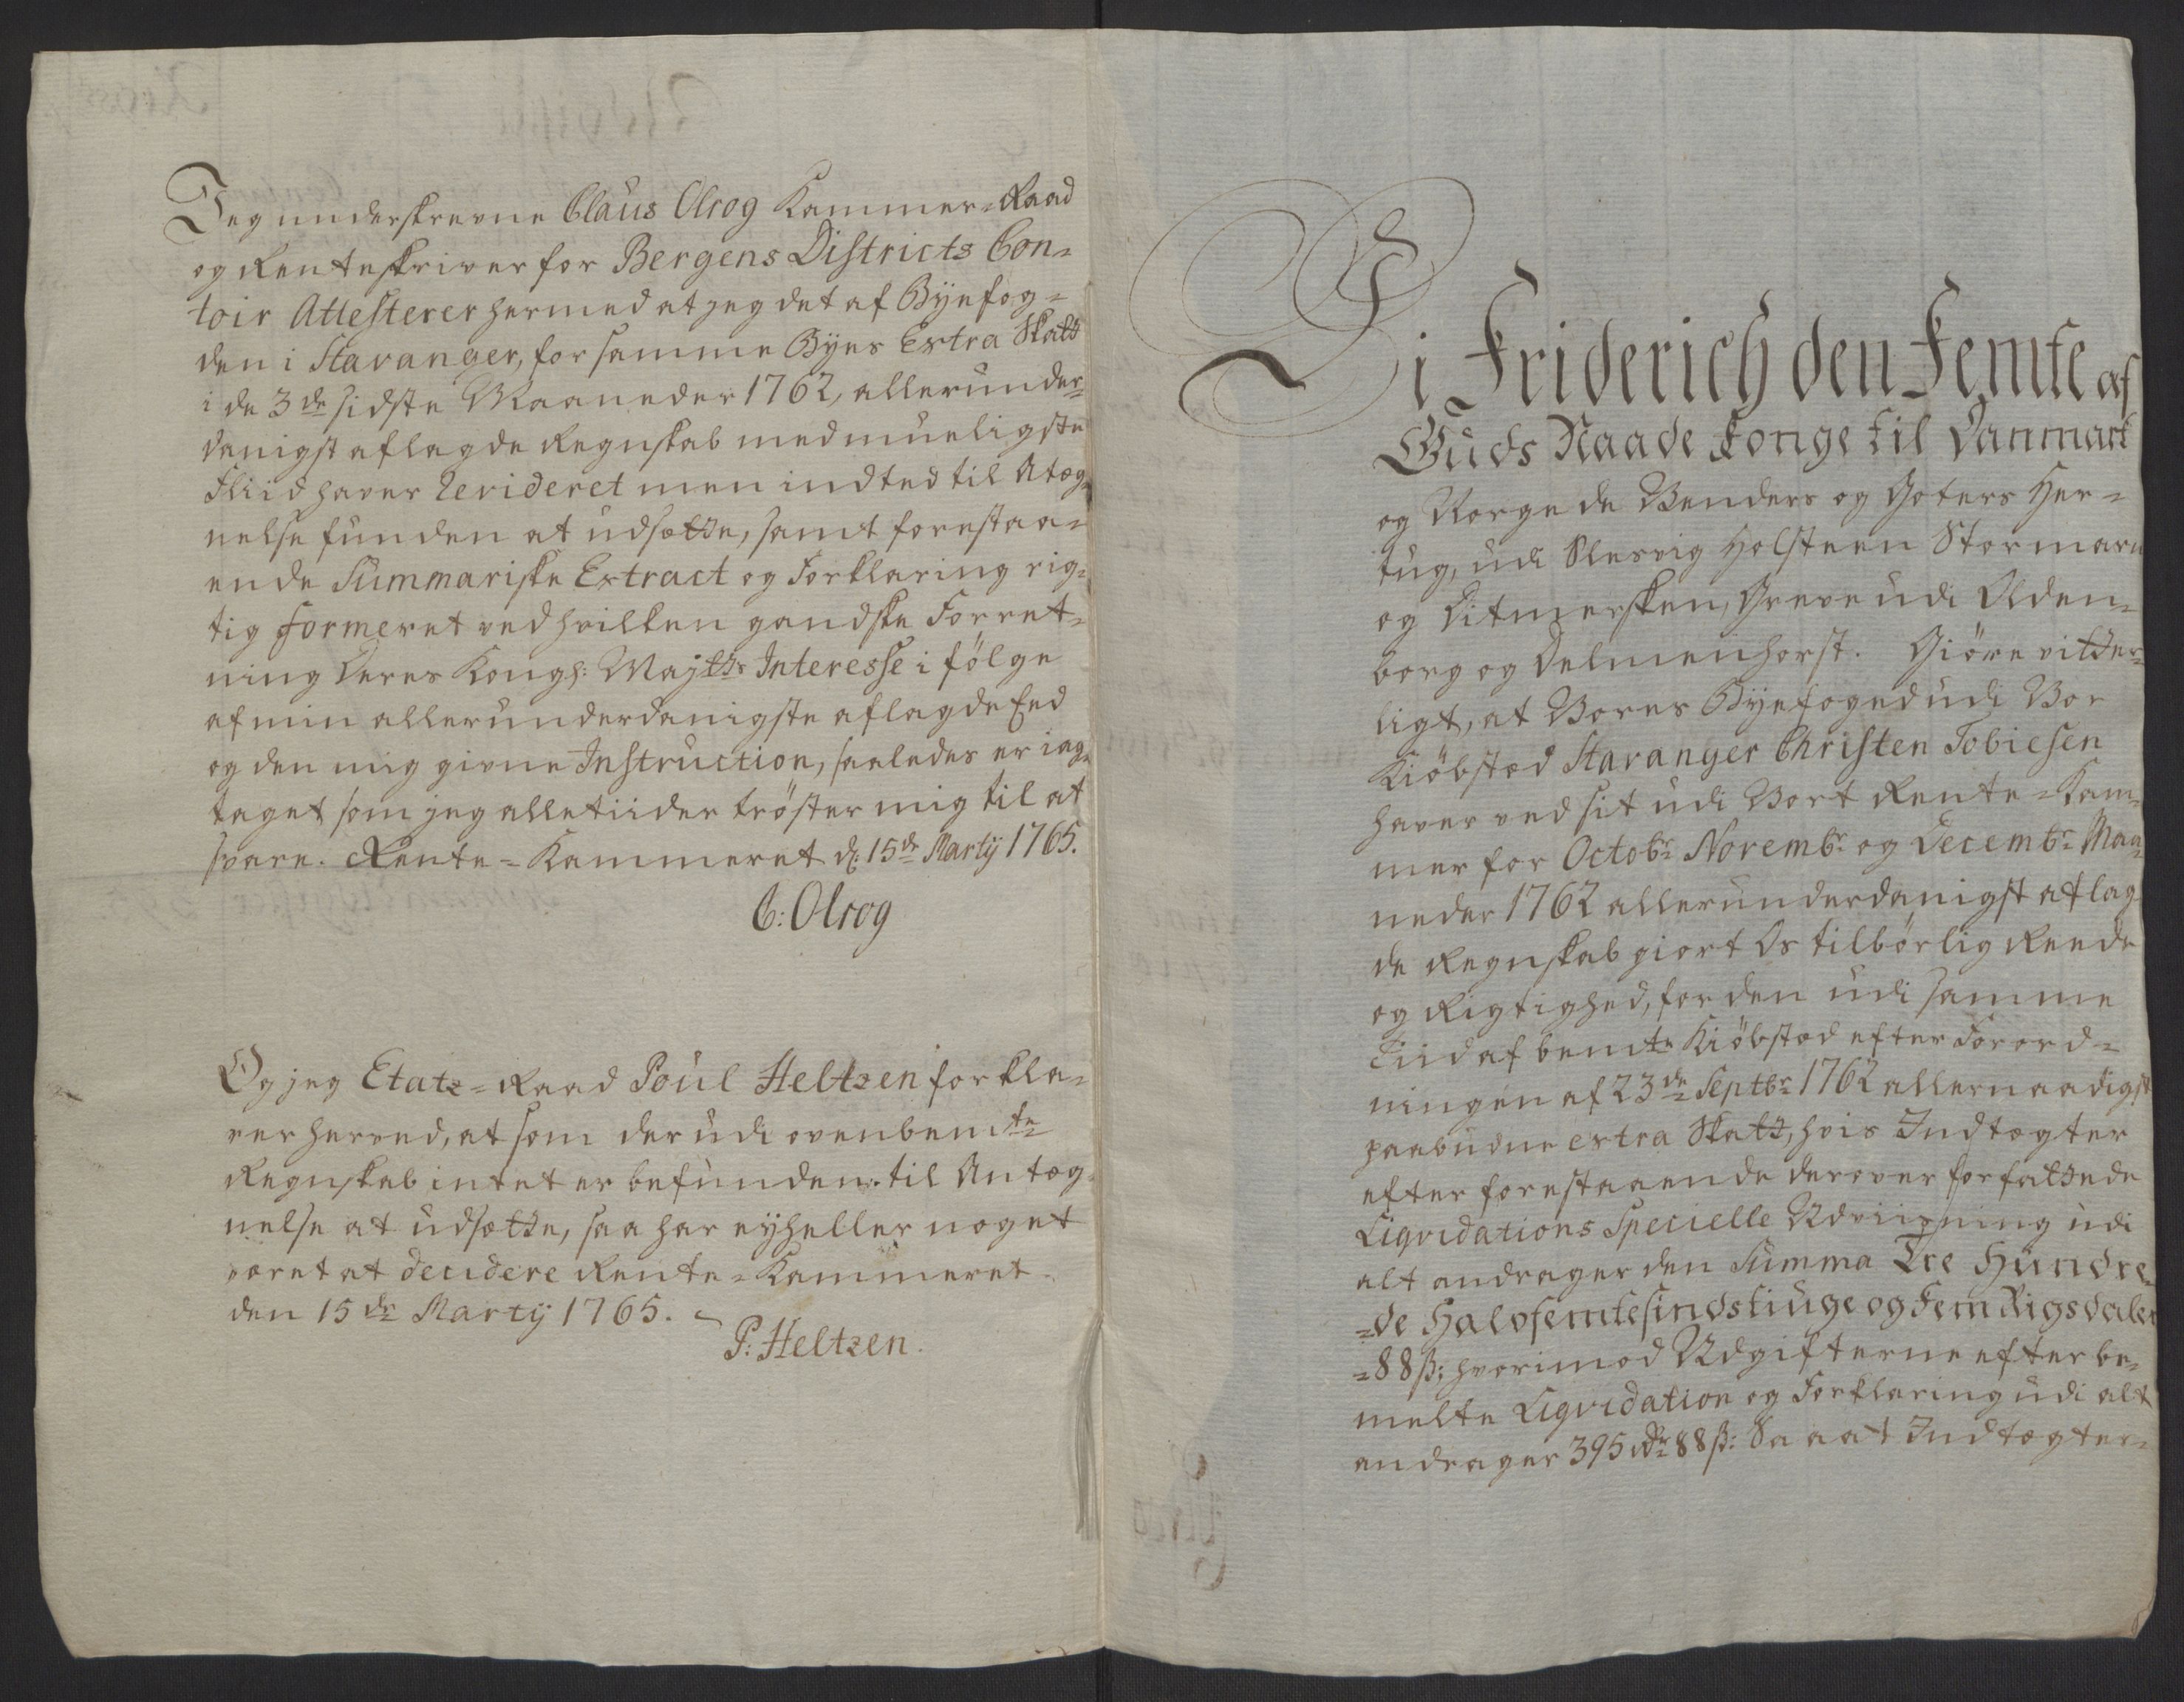 Jeg underskrevne Claus Olrog Kammer-Raad
og Renteskriver for Bergens Districts Con-
toir Attesterer hermed at jeg det af Byefog-
den i Stavanger, for samme Byes Extra Skatt
i de 3de sidste Maaneder 1762, allerunder-
danigst aflagde Regnskab med mueligste
Fliid haver Revideret men indted til Anteg-
nelse funden at udsætte, samt forestaa-
ende Summariske Extract og Forklaring rig-
tig formeret ved hvilken gandske Forret-
ning Deres Kongl: Majtts Interesse i følge
af min allerunderdanigste aflagde Eed
og den mig givne Instruction, saaledes er iag-
taget som jeg alletiider trøster mig til at
svare. Rente-Kammeret d: 15de Marty 1765.
C: Olrog
Og jeg Etatz-Raad Poul Heltzen forkla-
rer herved, at som der udi ovenbemte
Regnskab intet er befunden til Antæg-
nelse at udsætte, saa har ey heller noget
været at decidere Rente-Kammeret
den 15de Marty 1765.
P: Heltzen.
Vi Friderich den Femte af
Guds Naade Konge til Danmark
og Norge de Venders og Goters Her-
tug, udi Slesvig Holsteen Stormarn
og Ditmersken, Greve udi Olden-
borg og Delmenhorst. Giøre vitter-
ligt, at Vores Byefoged udi Vor
Kiöbstæd Stavanger Christen Tobiesen
haver ved sit udi Vort Rente-Kam-
mer for Octobr Novembr og Decembr Maa-
neder 1762 allerunderdanigst aflag-
de Regnskab giort Os tilbørlig Reede
og Rigtighed, for den udi samme
Tiid af bemte Kiöbstæd efter Forord-
ningen af 23de Septbr 1762 allernaadigst
paabudne extra Skatt, hvis Indtægter
efter forestaaende derover forfattede
Liqvidations Specielle Udviisning udi
alt andrager den Summa Tre Hundre-
de Halvfemtesindstiuge og Fem Rigsdaler
88 ß: hvorimod Udgifterne efter be-
melte Liqvidation og Forklaring udi alt
andrager 395 rdr 88 ß: Saa at Indtægter-